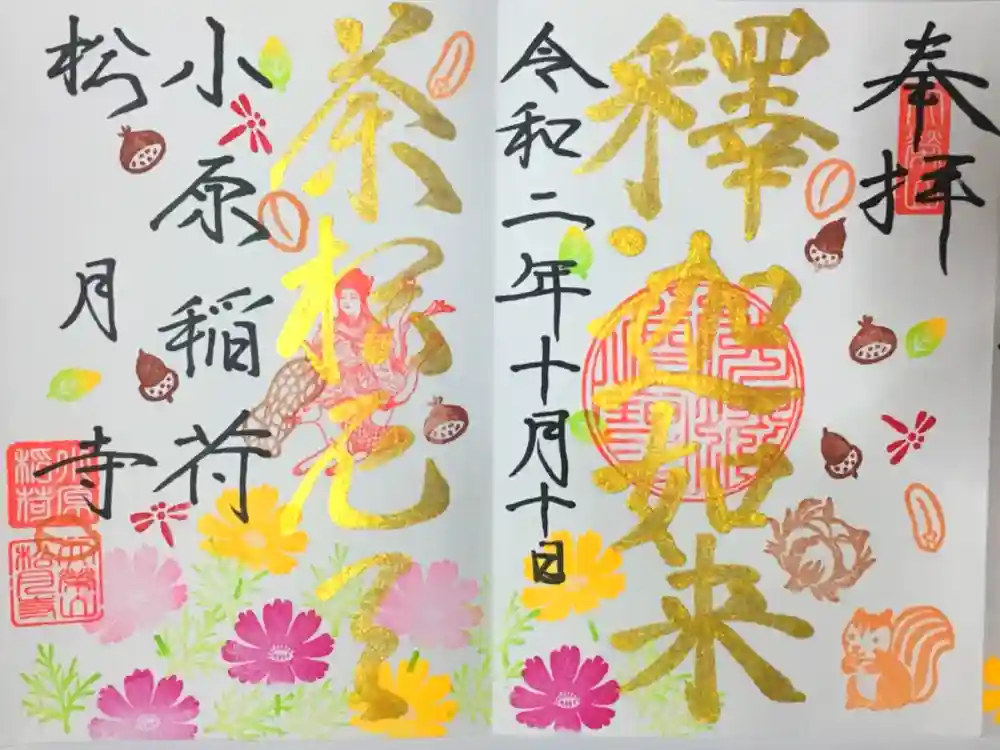 奉拝
釋迦如来
令和二年十月十日
荼枳尼天
小原稲荷
松月寺
小原稲荷